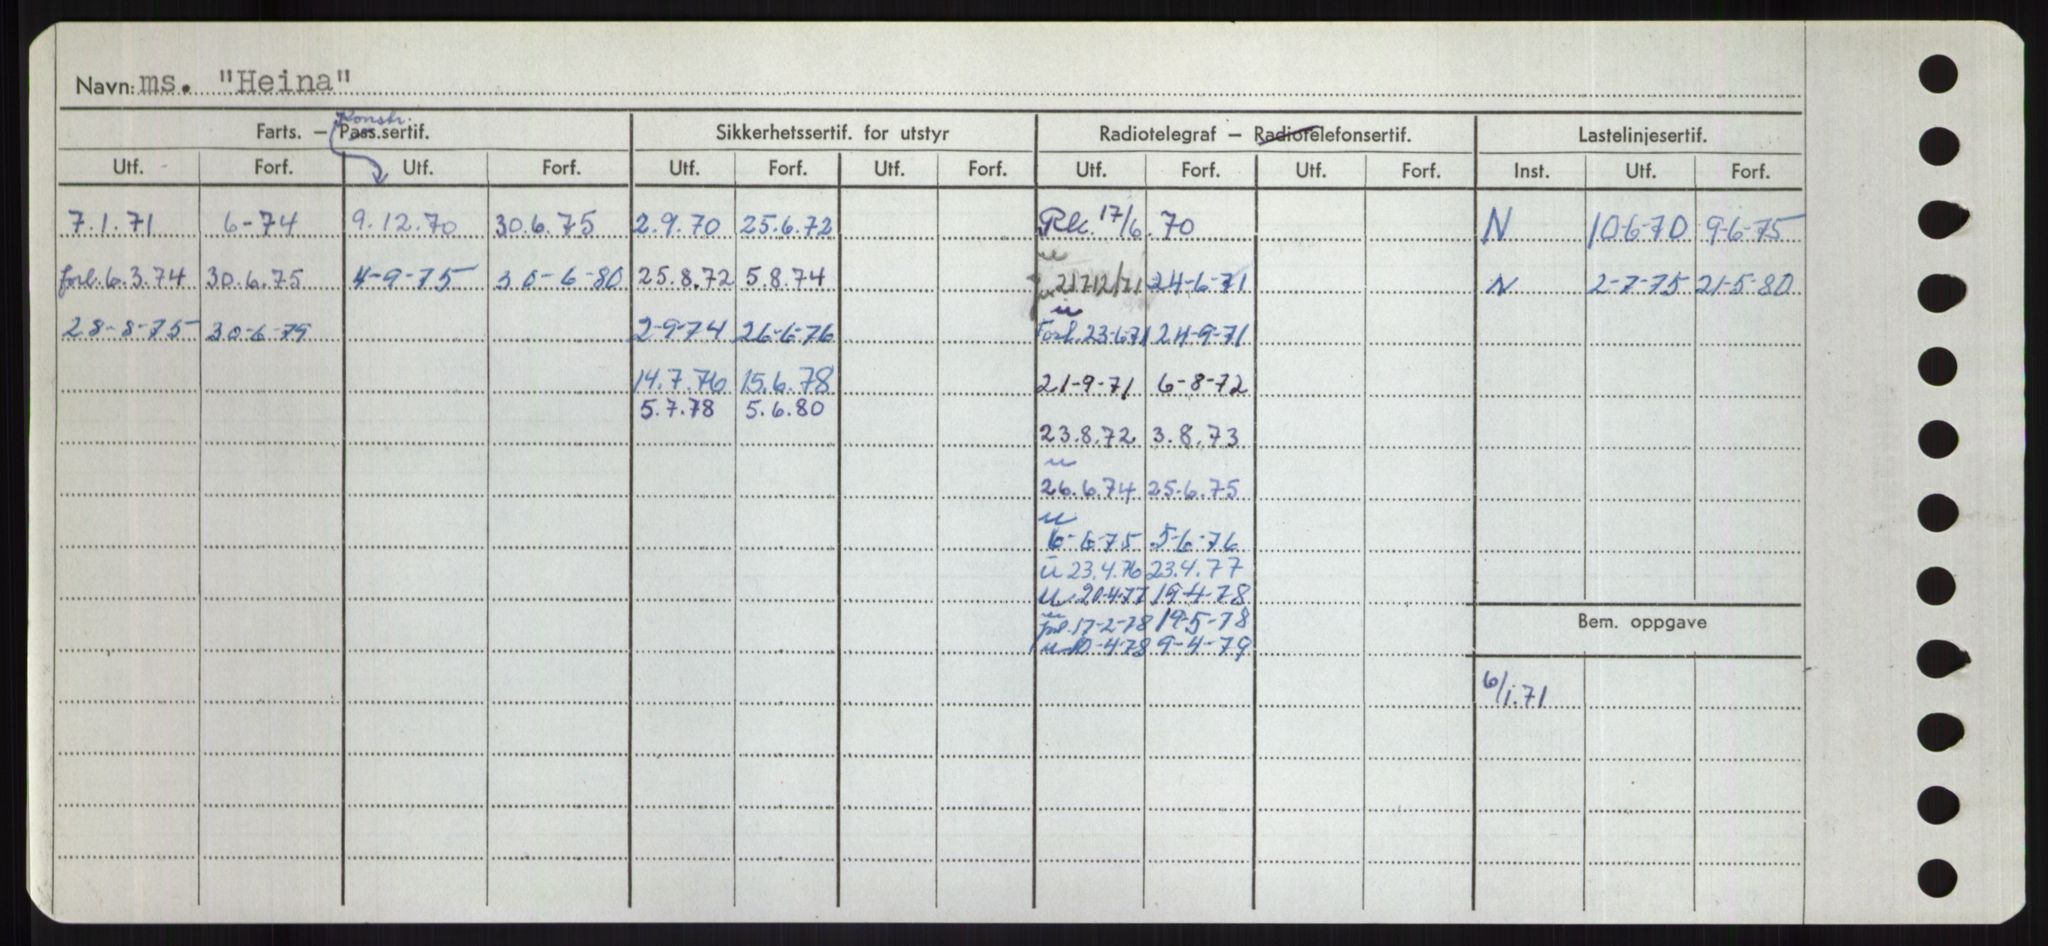 Navn: ms. "Heina"
Konstr.
Farts. – Pass.sertif. Sikkerhetssertif. for utstyr Radiotelegraf – Radiotelefonsertif. Lastelinjesertif.
Utf. Forf. Utf. Forf. Utf. Forf. Utf. Forf. Utf. Forf. Utf. Forf. Inst. Utf. Forf.
7.1.71 6-74 9.12.70 30.6.75 2.9.70 25.6.72 17/6.70 N 10-6-70 9-6-75
forl. 6.3.74 30.6.75 4-9-75 30-6-80 25.8.72 5.8.74 24-6-71 N 2-7-75 21-5-80
u
28-8-75 30-6-79 2-9-74 26-6-76 Forl. 23-6-71 24-9-71
14.7.76 15.6.78 21-9-71 6-8-72
5.7.78 5.6.80
23.8.72 3.8.73
u
26.6.74 25.6.75
u
6-6-75 5-6-76
u 23.4.76 23.4.77
u 20-4-77 19-4-78
Bem. oppgave
forl. 17-2-78 19-5-78
u 10-4-78 9-4-79
6/1.71